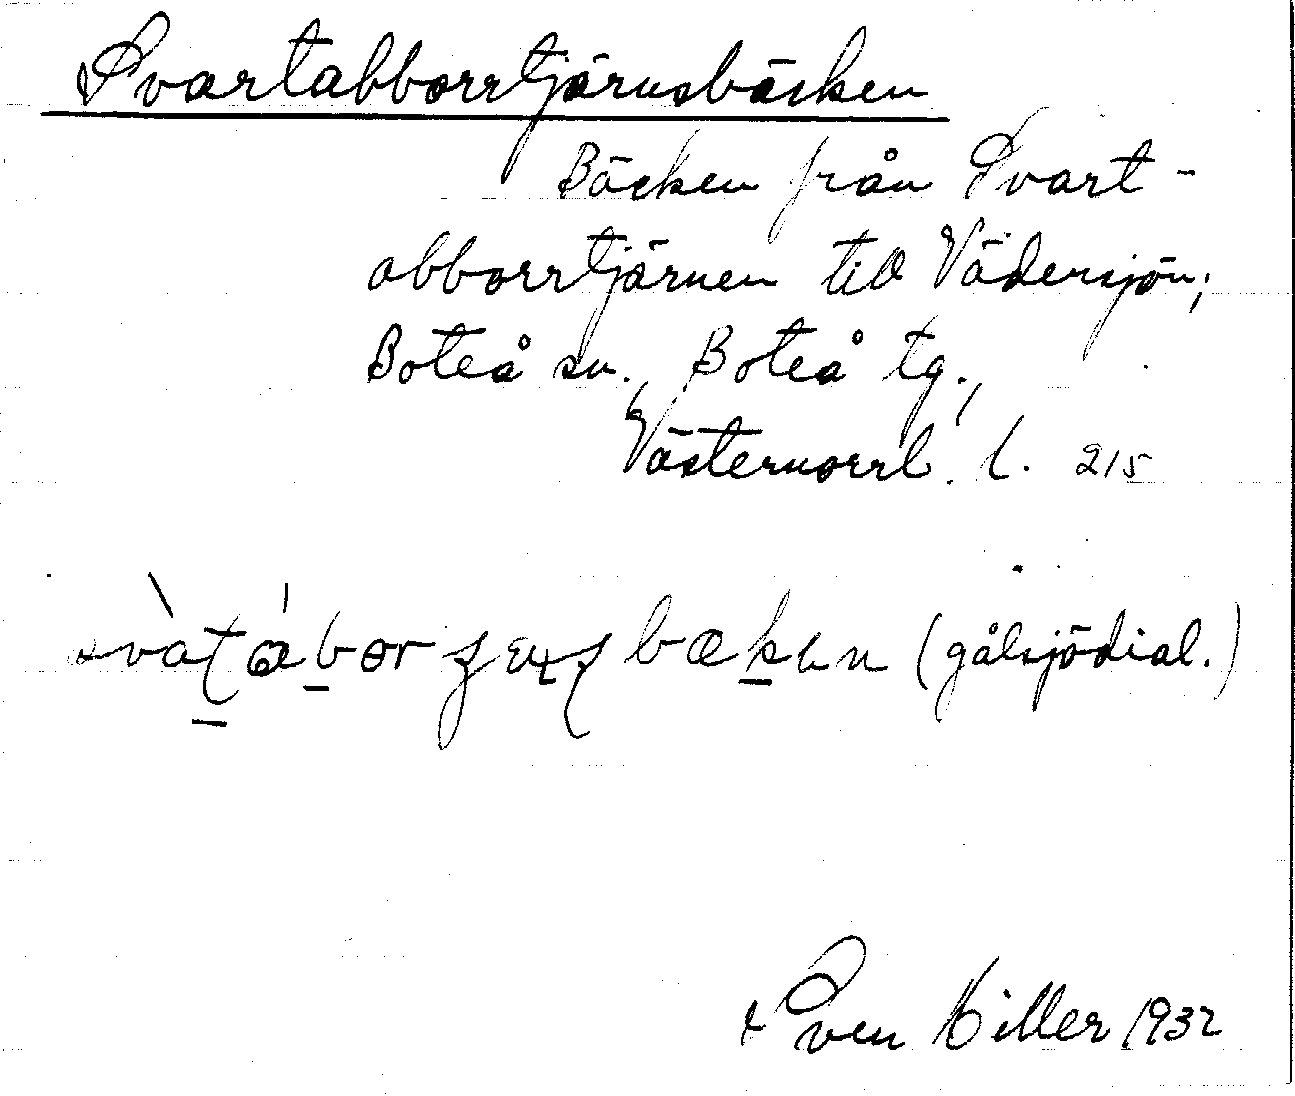 Svartabborrtjärnsbäcken
Bäcken från Svart-
abborrtjärnen till Vädersjön;
Boteå sn., Boteå tg.,
Västernorrl. l. 215
(gålsjödial.)
Sven Hiller 1932